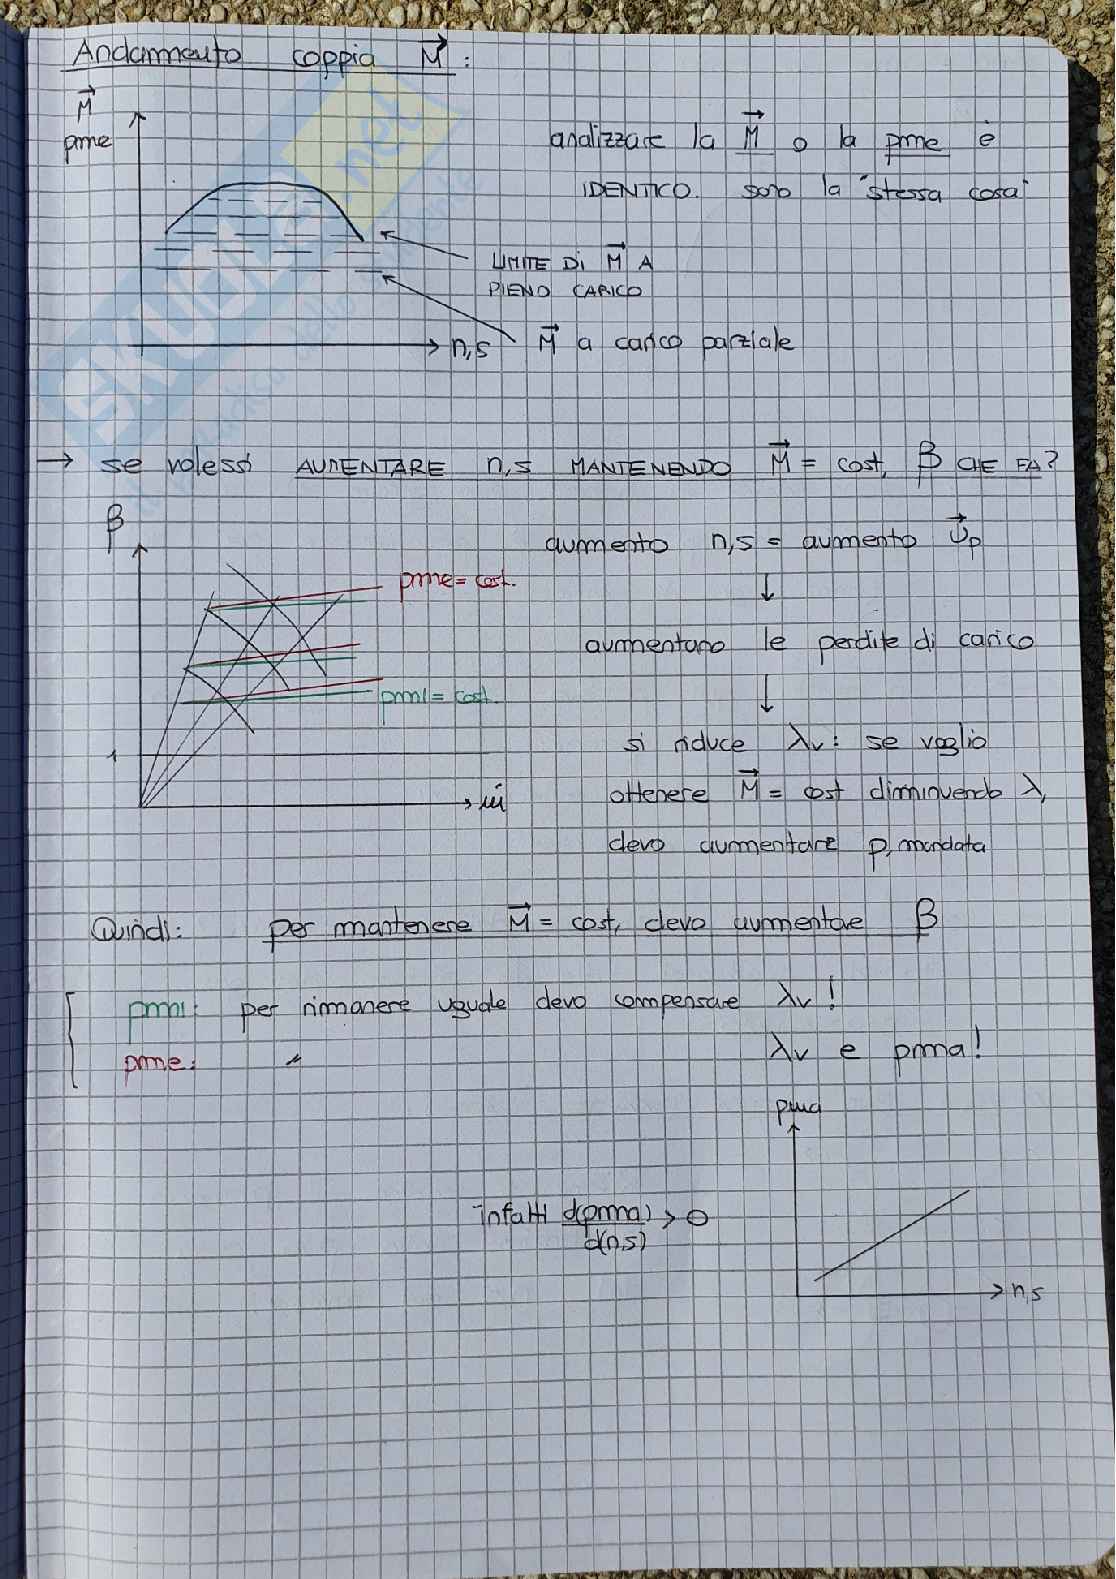 Andamento coppia M:
M
pme
analizzare la M o la pme è
IDENTICO. sono la "stessa cosa"
LIMITE DI M A
PIENO CARICO
n,s
M a carico parziale
→ se volessi AUMENTARE n,s MANTENENDO M = cost, β CHE FA?
β
aumento n,s = aumento Up
pme = cost.
↓
aumentano le perdite di carico
pmi = cost.
↓
1
si riduce λv: se voglio
ottenere M = cost diminuendo λ,
ṁ
devo aumentare p, mandata
Quindi: per mantenere M = cost, devo aumentare β
pmi: per rimanere uguale devo compensare λv!
pme: " λv e pma!
pma
infatti d(pma)/d(n,s) > 0
n,s
SKUOLA.net